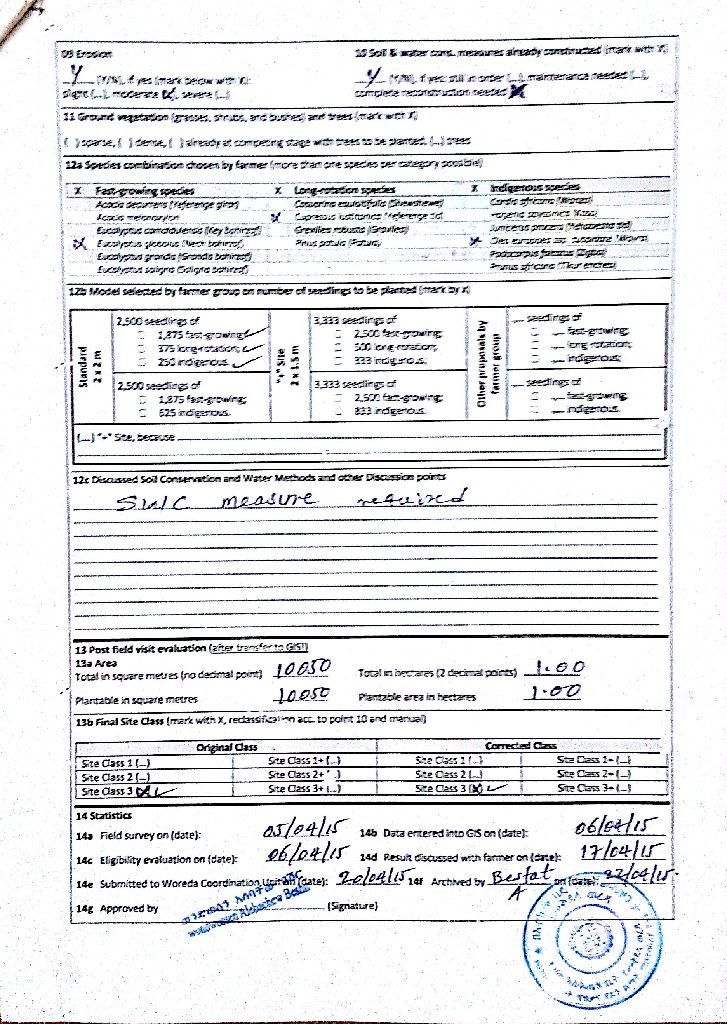 09 Erosion
Y (Y/N), if yes (mark below with X):
slight (...), moderate (X), severe (...)
10 Soil & water cons. measures already constructed (mark with X)
Y (Y/N), if yes: still in order (...), maintenance needed (...),
complete reconstruction needed (X)
11 Ground vegetation (grasses, shrubs, and bushes) and trees (mark with X)
( ) sparse, ( ) dense, ( ) already at competing stage with trees to be planted, (...) trees
12a Species combination chosen by farmer (more than one species per category possible)
X Fast-growing species X Long-rotation species X Indigenous species
Acacia decurrens (Yeferenge girar) Casuarina equisetifolia (Shewshewe) Cordia africana (Wanza)
Acacia melanoxylon X Cupressus lusitanica (Yeferenge tid)
Eucalyptus camaldulensis (Key bahirzaf) Grevillea robusta (Gravilea) Juniperus procera (Yehabesha tid)
X Eucalyptus globulus (Nech bahirzaf) Pinus patula (Patula) X Olea europaea ssp. cuspidata (Woyra)
Eucalyptus grandis (Grandis bahirzaf) Podocarpus falcatus (Zigba)
Eucalyptus saligna (Saligna bahirzaf) Prunus africana (Tikur enchet)
12b Model selected by farmer group on number of seedlings to be planted (mark by x)
Standard
2 x 2 m
2,500 seedlings of
1,875 fast-growing; ✓
375 long-rotation; ✓
250 indigenous. ✓
2,500 seedlings of
1,875 fast-growing;
625 indigenous.
"+" Site
2 x 1.5 m
3,333 seedlings of
2,500 fast-growing;
500 long-rotation;
333 indigenous.
3,333 seedlings of
2,500 fast-growing;
833 indigenous.
Other proposals by
farmer group
... seedlings of
... fast-growing;
... long rotation;
... indigenous;
... seedlings of
... fast-growing;
... indigenous.
(...) "+" Site, because
12c Discussed Soil Conservation and Water Methods and other Discussion points
SWC measure required
13 Post field visit evaluation (after transfer to GIS!)
13a Area
Total in square metres (no decimal point) 10050 Total in hectares (2 decimal points) 1.00
Plantable in square metres 10050 Plantable area in hectares 1.00
13b Final Site Class (mark with X, reclassification acc. to point 10 and manual)
Original Class Corrected Class
Site Class 1 (...) Site Class 1+ (...) Site Class 1 (...) Site Class 1+ (...)
Site Class 2 (...) Site Class 2+ (...) Site Class 2 (...) Site Class 2+ (...)
Site Class 3 (X) ✓ Site Class 3+ (...) Site Class 3 (X) ✓ Site Class 3+ (...)
14 Statistics
14a Field survey on (date): 05/04/15 14b Data entered into GIS on (date): 06/04/15
14c Eligibility evaluation on (date): 06/04/15 14d Result discussed with farmer on (date): 17/04/15
14e Submitted to Woreda Coordination Unit on (date): 20/04/15 14f Archived by Besfat A on (date): 22/04/15
14g Approved by (Signature)